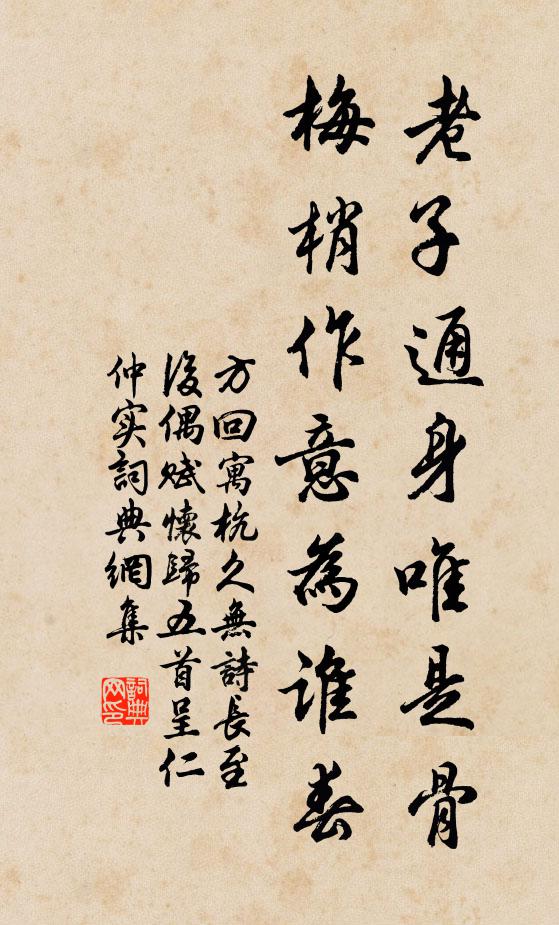 老子通身唯是骨
梅梢作意為誰春
方回寓杭久無詩長至
後偶賦懷歸五首呈仁
仲实詞典網集
詞典
网印